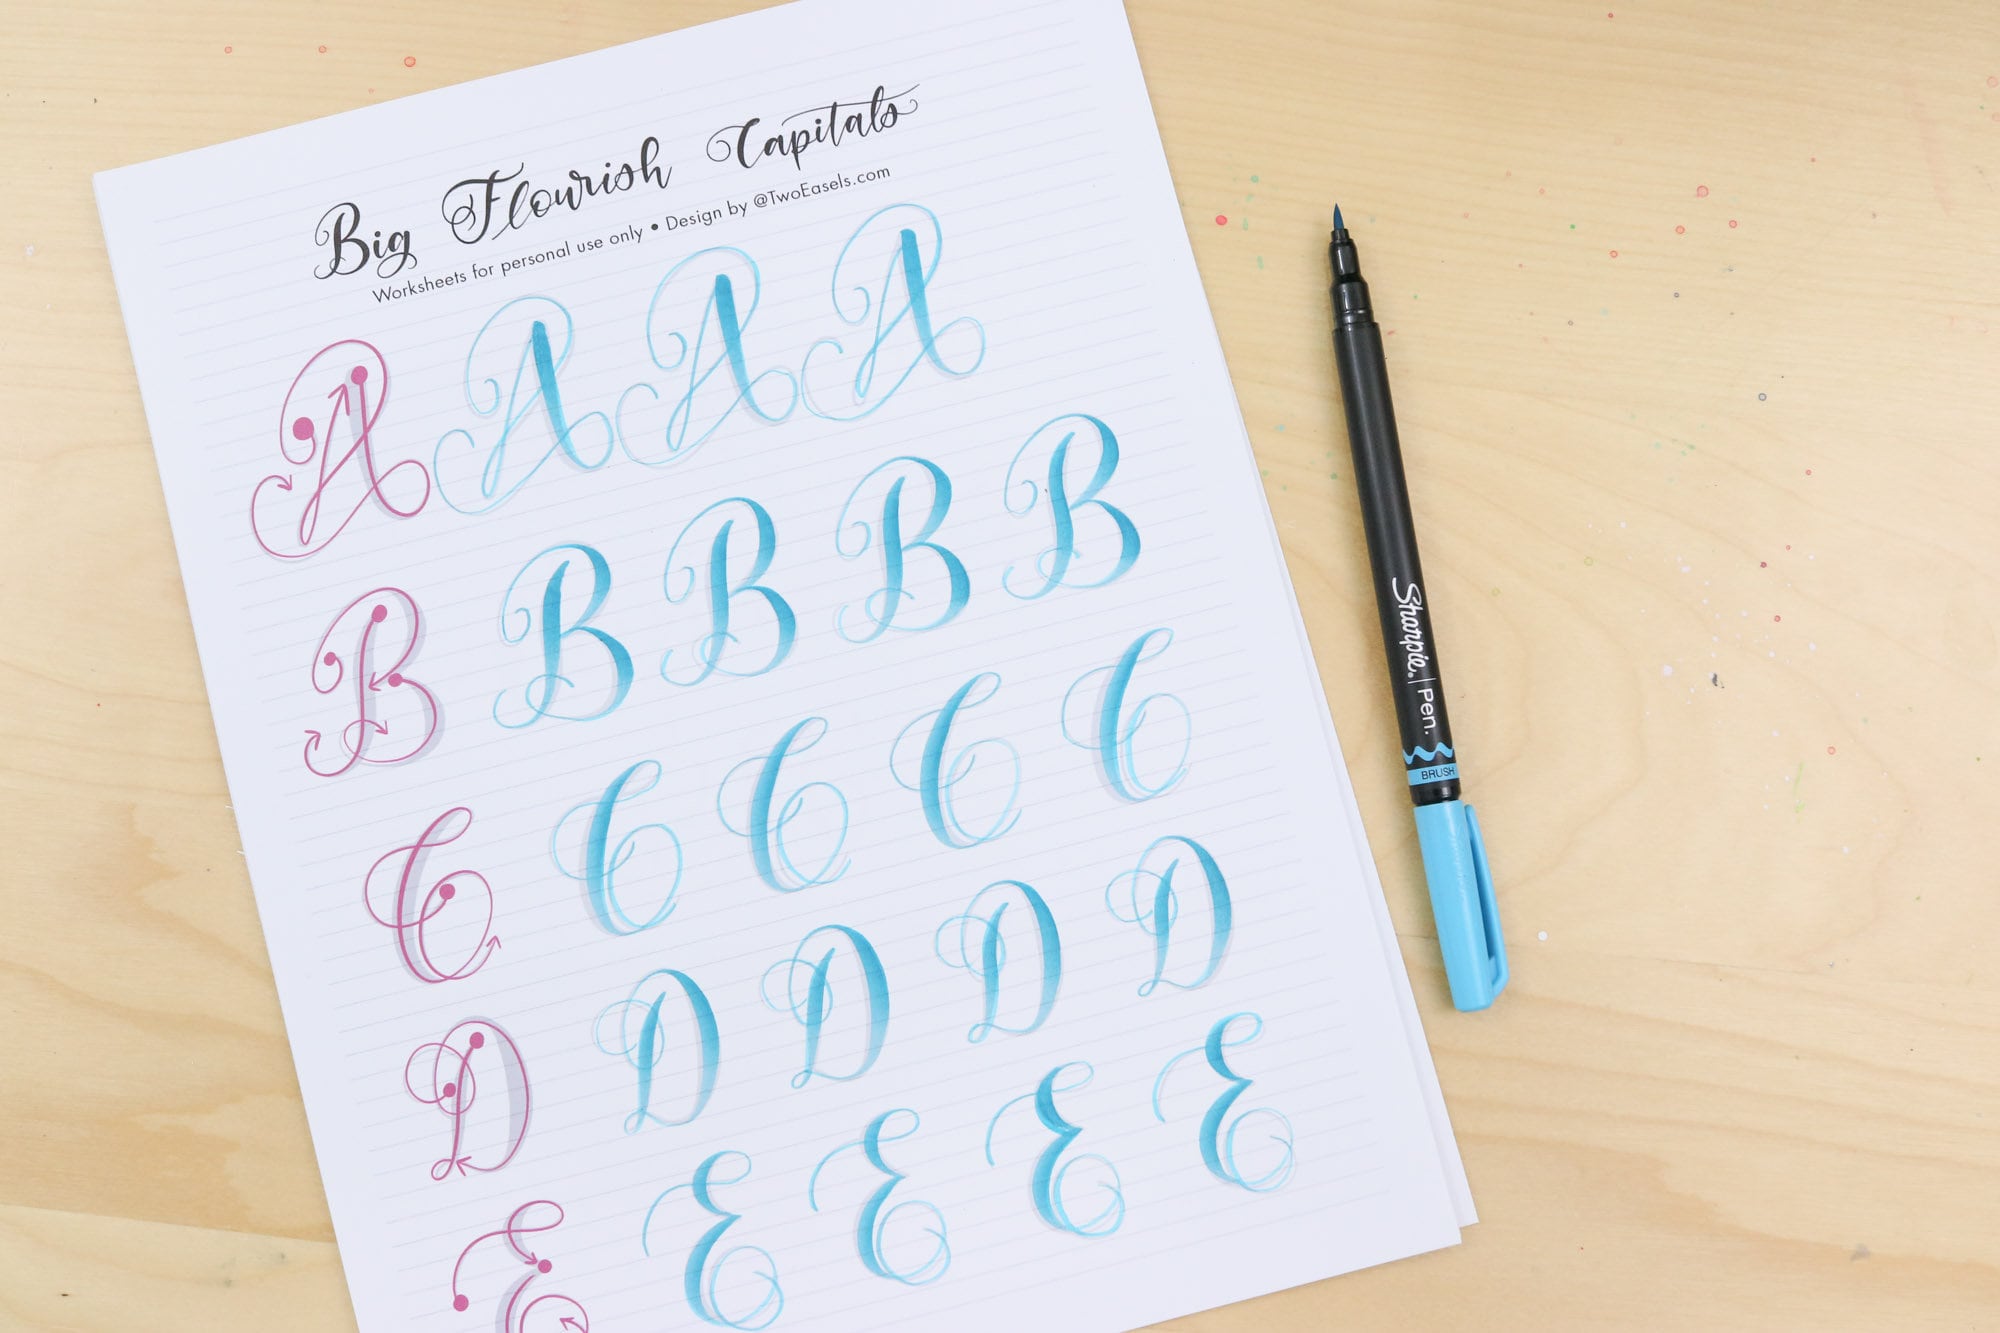 Big Flourish Capitals
Worksheets for personal use only • Design by @TwoEasels.com
A A A A
B B B B B
C C C C C
D D D D D
E E E E E
Sharpie. | Pen.
BRUSH